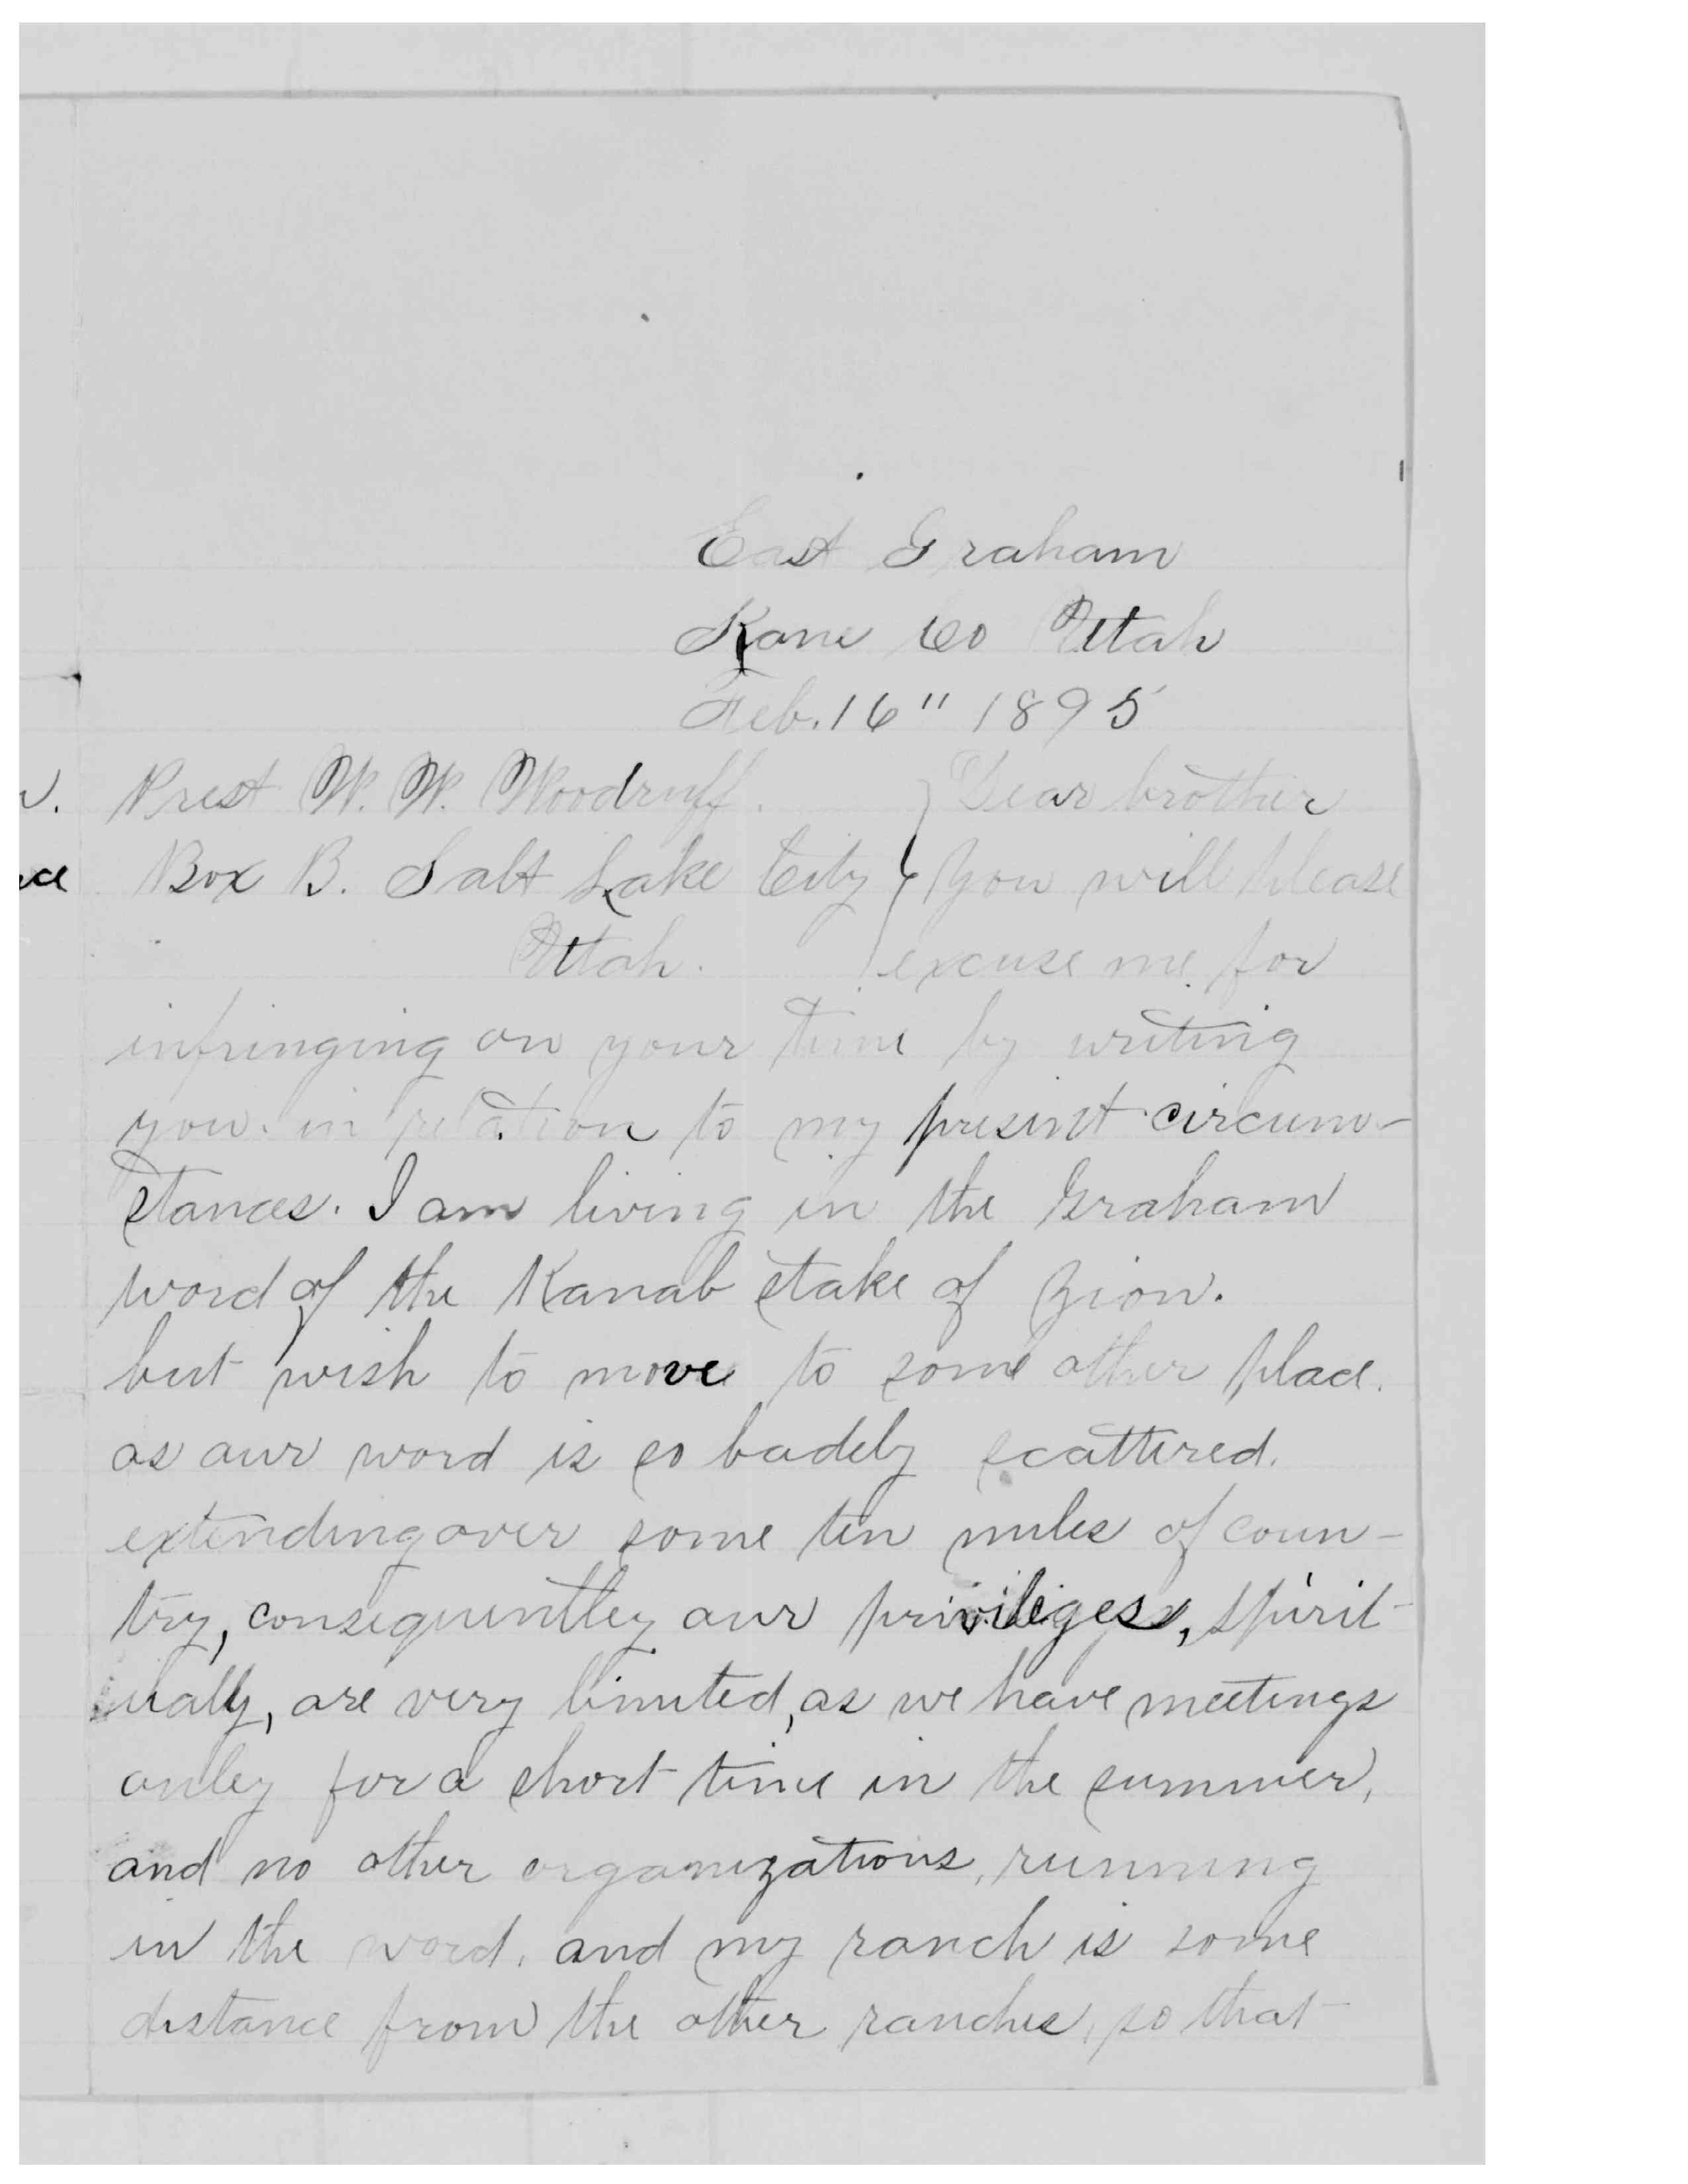 East Graham
Kane Co Utah
Feb. 16" 1895
Prest W. W. Woodruff. } Dear brother
Box B. Salt Lake City } You will please
Utah. } excuse me for
infringing on your time by writing
you. in relation to my present circum-
stances. I am living in the Graham
word of the Kanab stake of Zion.
but wish to move to some other place.
as our word is so badely scattered.
extending over some ten miles of coun-
try, consequentley our privileges, spirit-
ually, are very limited, as we have meetings
onley for a short time in the summer,
and no other organizations, running
in the word. and my ranch is some
distance from the other ranches, so that